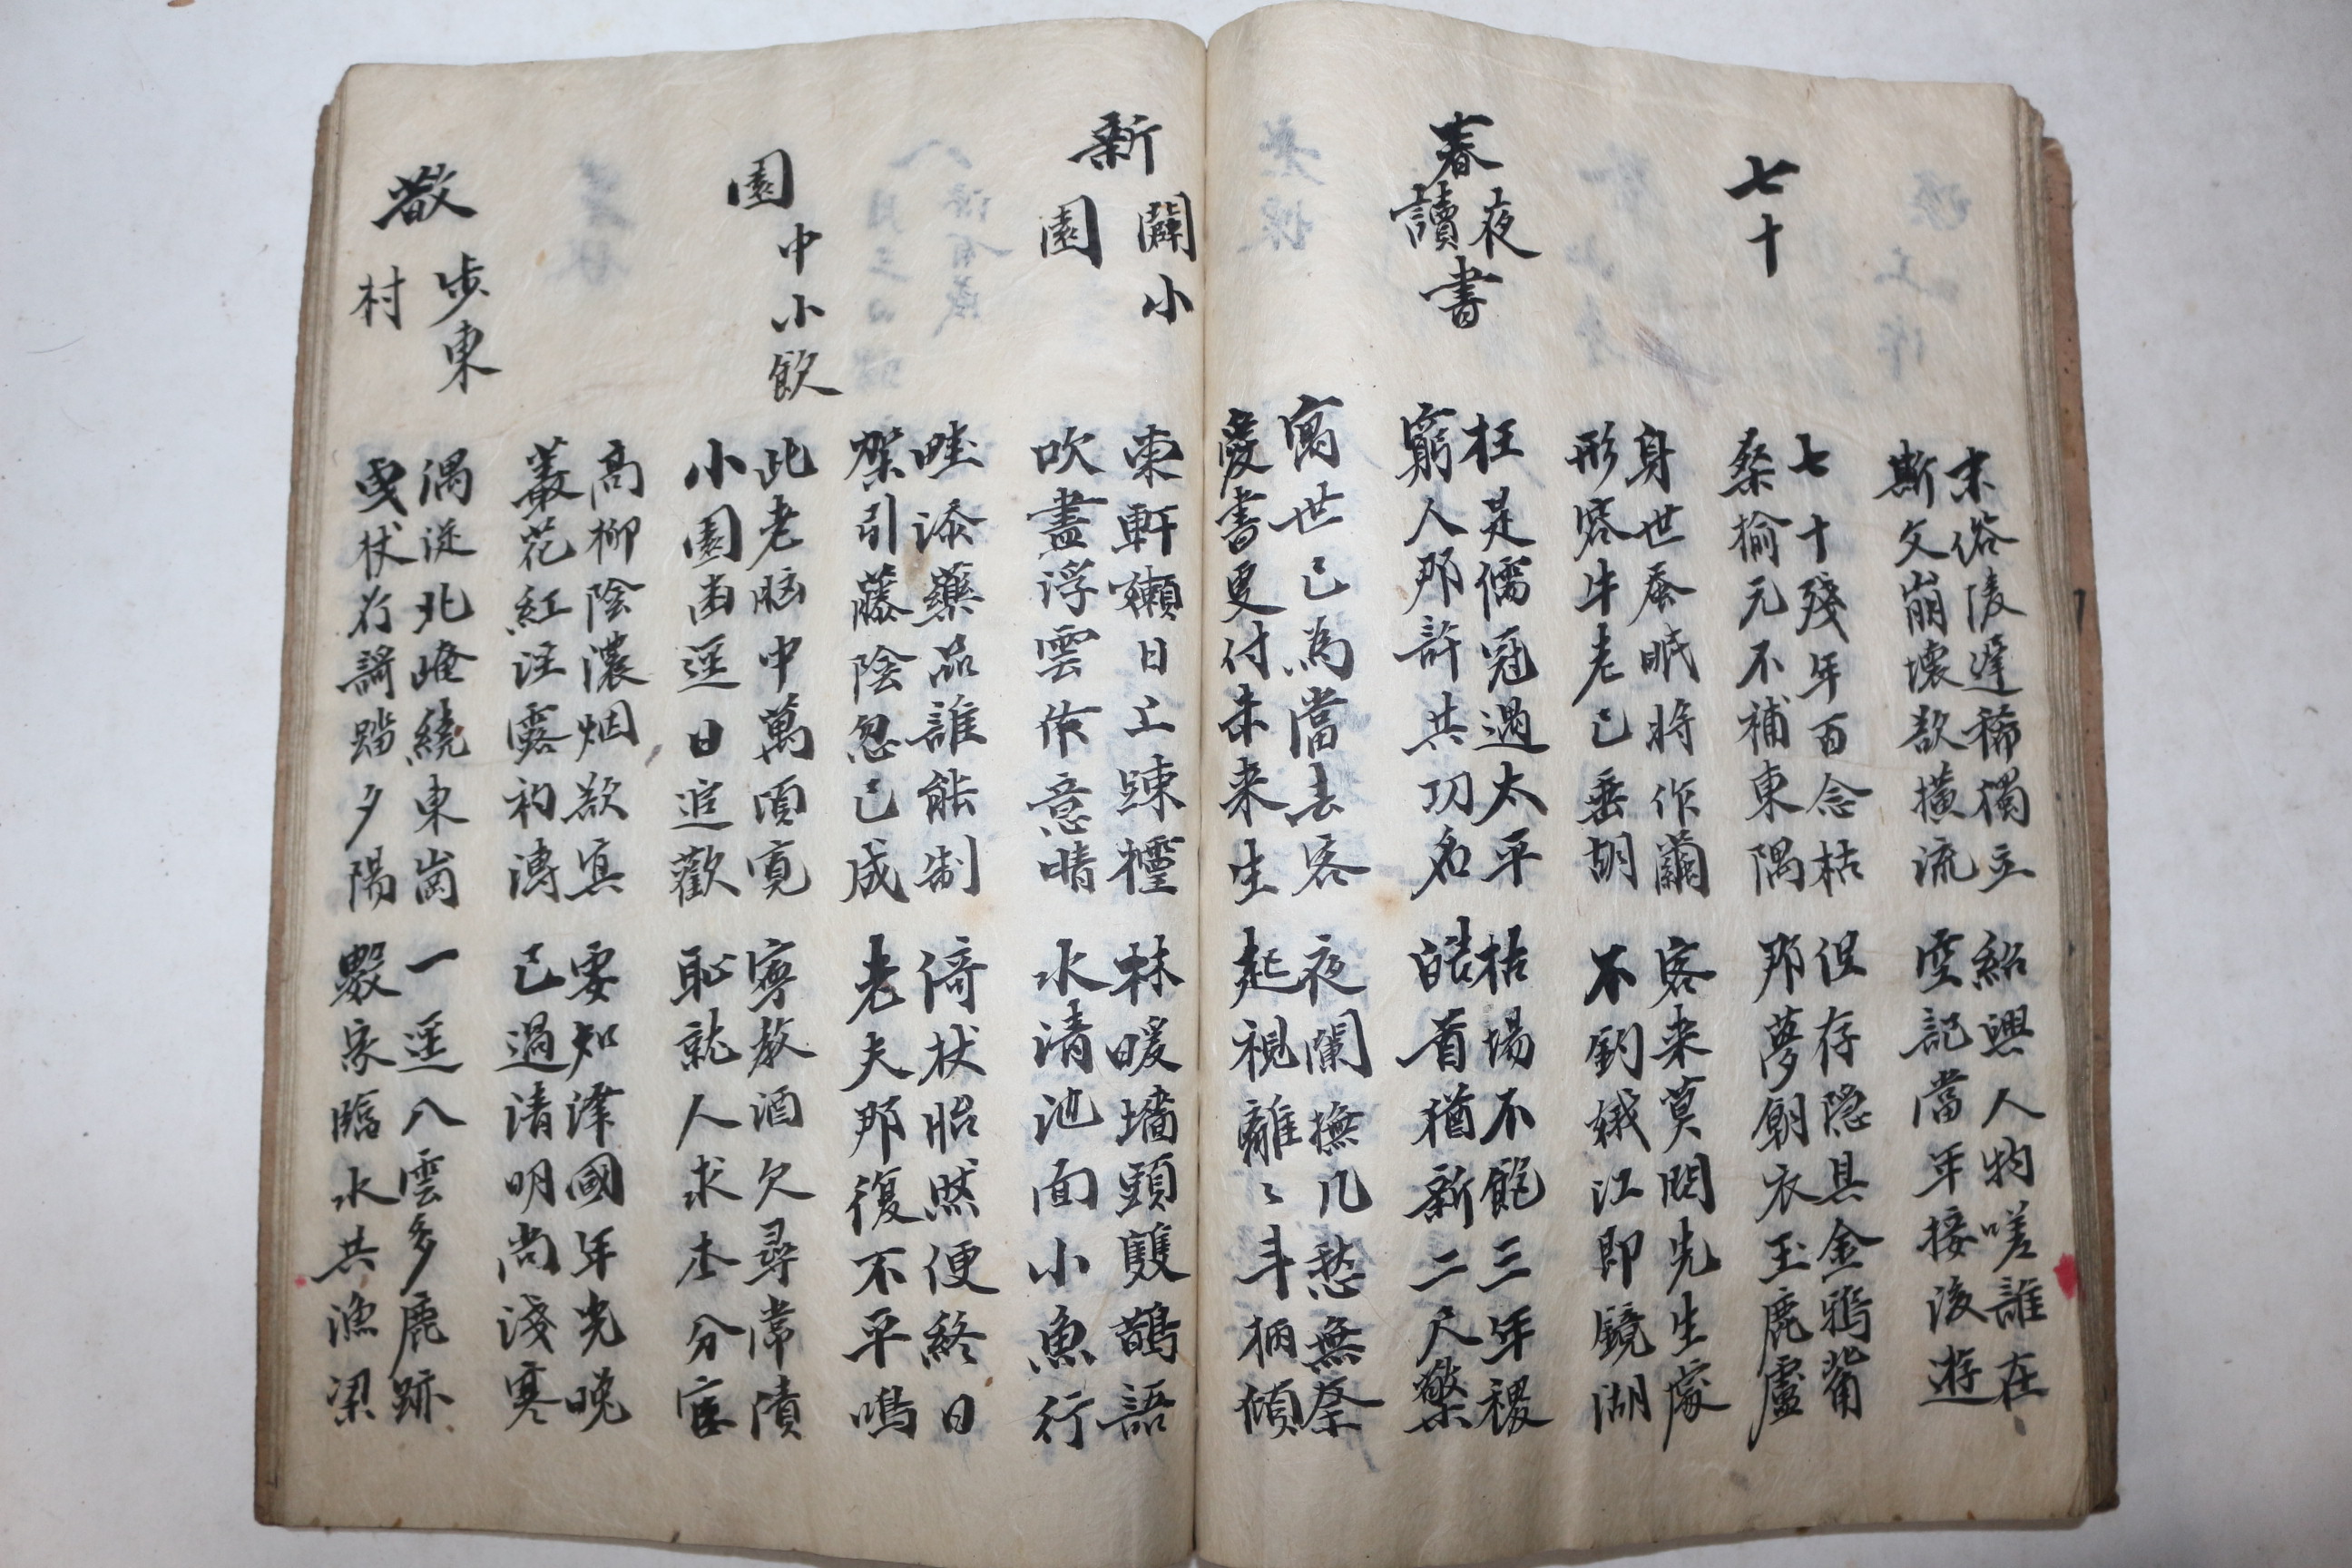 末俗陵遲稀獨立
斯文崩壞欲橫流
紹興人物嗟誰在
空記當年接後遊
七十
七十殘年百念枯
桑榆元不補東隅
但存隐具金鴉觜
那夢朝衣玉鹿盧
身世蚕眠將作繭
形容牛老已垂胡
客来莫問先生處
不釣娥江即鏡湖
春夜讀書
枉是儒冠遇太平
窮人那許共功名
枯場不飽三年稷
皓首猶新二尺檠
寓世已為當去客
愛書更付未来生
夜闌撫几愁無奈
起視離〻斗柄傾
新闢小園
東軒嬾日上踈櫺
吹盡浮雲作意晴
林暖墻頭雙鵲語
水清池面小魚行
畦添藥品誰能制
架引藤陰忽已成
倚杖昭然便終日
老夫那復不平鳴
園中小飲
此老胸中萬頃寬
小園南逕日追歡
寧教酒欠尋常債
恥就人求本分官
高柳陰濃烟欲寘
叢花紅泣露初漙
要知澤國年光晚
已過清明尚淺寒
散步東村
偶從北崦繞東崗
曳杖行謌踏夕陽
一逕入雲多鹿跡
數家臨水共漁梁